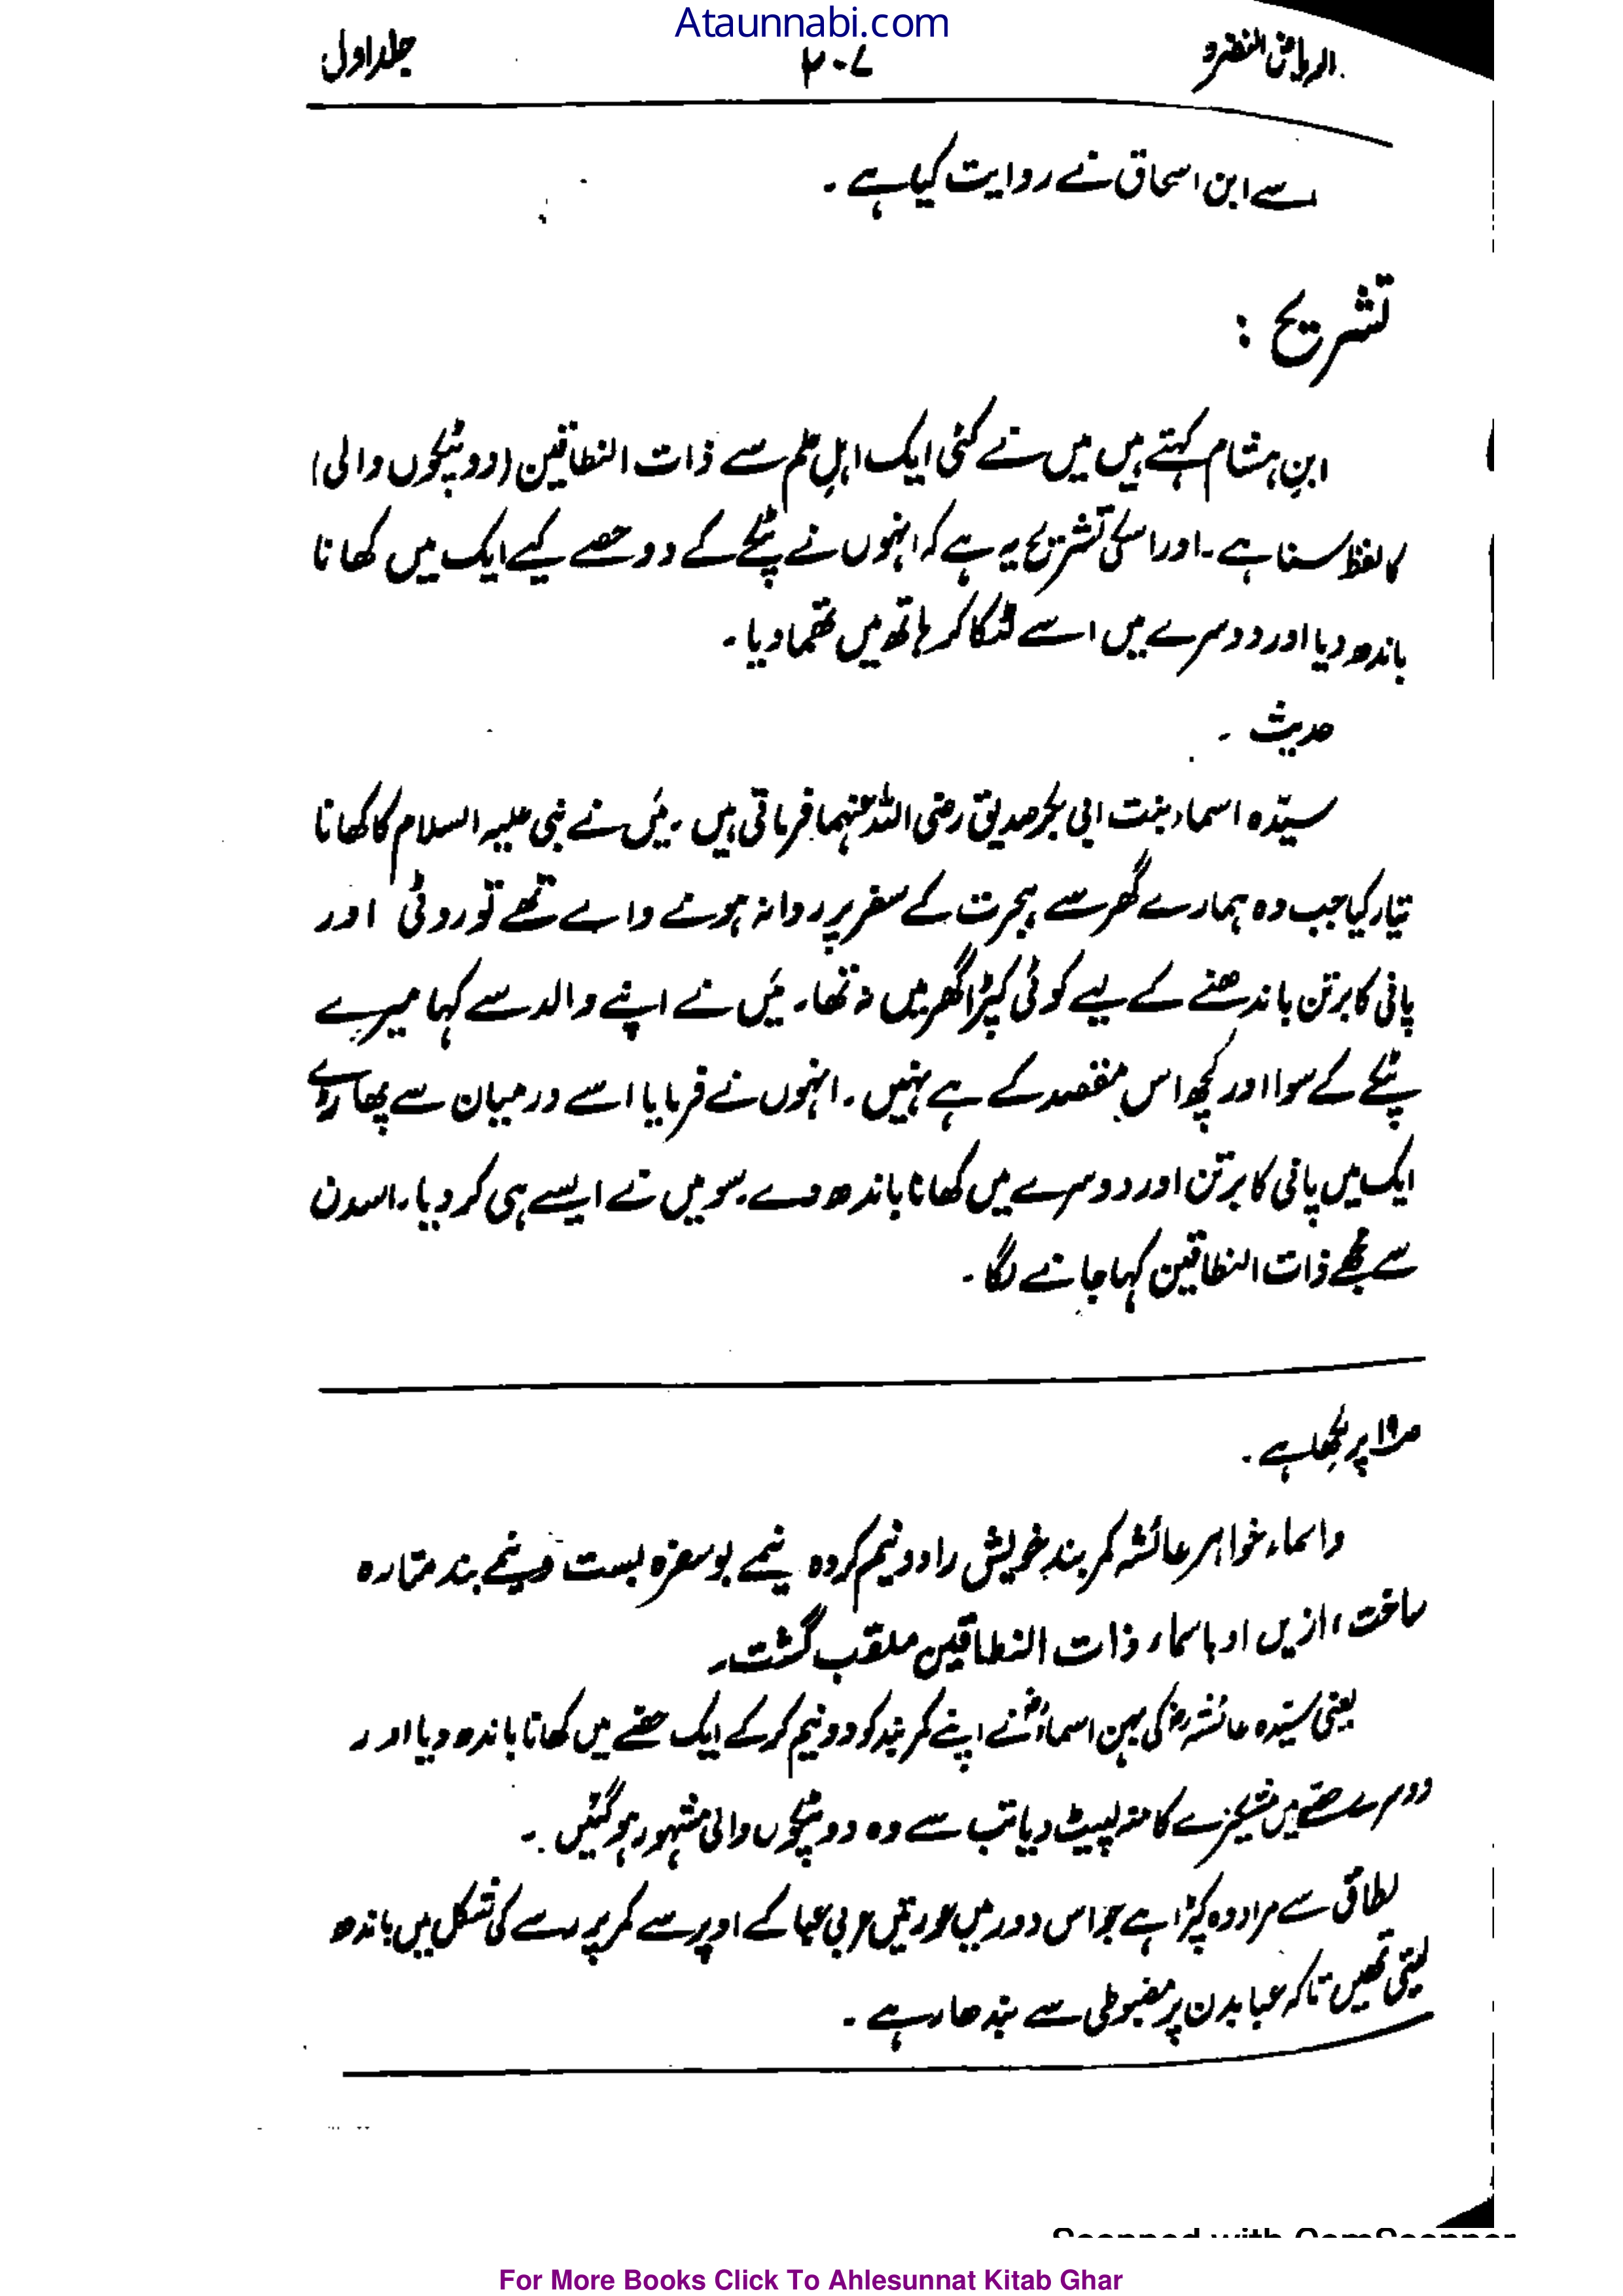 Ataunnabi.com
الریاض النضرہ ۲۰۷ جلد اول
اسے ابن اسحاق نے روایت کیا ہے ۔
تشریح :
ابنِ ہشام کہتے ہیں میں نے کئی ایک اہلِ علم سے ذات النطاقین (دو پٹکوں والی)
کا لفظ سنا ہے ۔ اور اسکی تشریح یہ ہے کہ انہوں نے پٹکے کے دو حصے کیے ایک میں کھانا
باندھ دیا اور دوسرے میں اسے لٹکا کر ہاتھ میں تھما دیا ۔
حدیث ۔
سیّدہ اسماء بنت ابی بکر صدیق رضی اللہ عنہما فرماتی ہیں ۔ میَں نے نبی علیہ السلام کا کھانا
تیار کیا جب وہ ہمارے گھر سے ہجرت کے سفر پر روانہ ہونے والے تھے تو روٹی اور
پانی کا برتن باندھنے کے لیے کوئی کپڑا گھر میں نہ تھا ۔ میَں نے اپنے والد سے کہا میرے
پٹکے کے سوا اور کچھ اس مقصد کے ہے نہیں ۔ انہوں نے فرمایا اسے درمیان سے پھاڑ دے
ایک میں پانی کا برتن اور دوسرے میں کھانا باندھ دے ۔ سو میں نے ایسے ہی کر دیا ۔ اسدن
سے مجھے ذات النطاقین کہا جانے لگا ۔
پر لکھا ہے ۔
واسماء خواہر عائشہ کمر بندِ خویش را دو نیم کردہ نیمے بر سفرہ بست و نیمے بند
ساخت ، ازیں او باسماء ذات النطاقین ملقب گشت ۔
یعنی سیّدہ عائشہؓ کی بہن اسماءؓ نے اپنے کمر بند کو دو نیم کر کے ایک حصّے میں کھانا باندھ دیا اور
دوسرے حصّے میں مشکیزے کا منہ لپیٹ دیا تب سے وہ دو پٹکوں والی مشہور ہو گئیں ۔
لطاق سے مراد وہ کپڑا ہے جو اس دور میں عورتیں عربی عبا کے اوپر سے کمر پر رسے کی شکل میں باندھ
لیتی تھیں تاکہ عبا بدن پر مضبوطی سے بندھا رہے ۔
Scanned with CamScanner
For More Books Click To Ahlesunnat Kitab Ghar